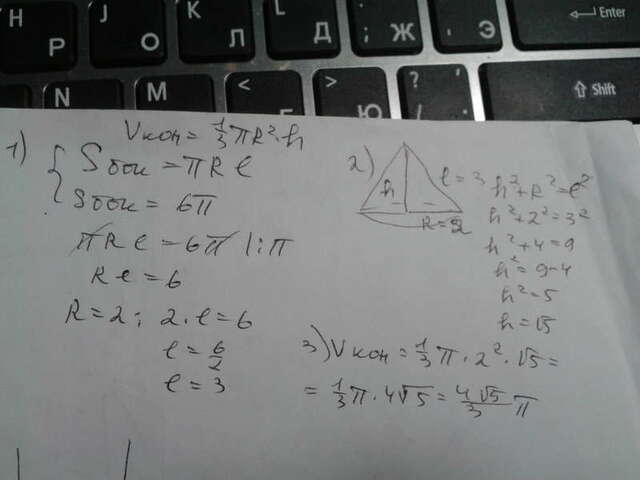 H Р
J О
K Л
L Д
: ; Ж
" ' Э
Enter
N
M
<
> Ю
? / .
Shift
Vкон = 1/3 πR²·h
1) { Sбок = πRl
Sбок = 6π
πRl = 6π |:π
Rl = 6
R = 2; 2·l = 6
l = 6/2
l = 3
2)
h
l = 3
R = 2
h² + R² = l²
h² + 2² = 3²
h² + 4 = 9
h² = 9 - 4
h² = 5
h = √5
3) Vкон = 1/3 π · 2² · √5 =
= 1/3 π · 4√5 = 4√5/3 π